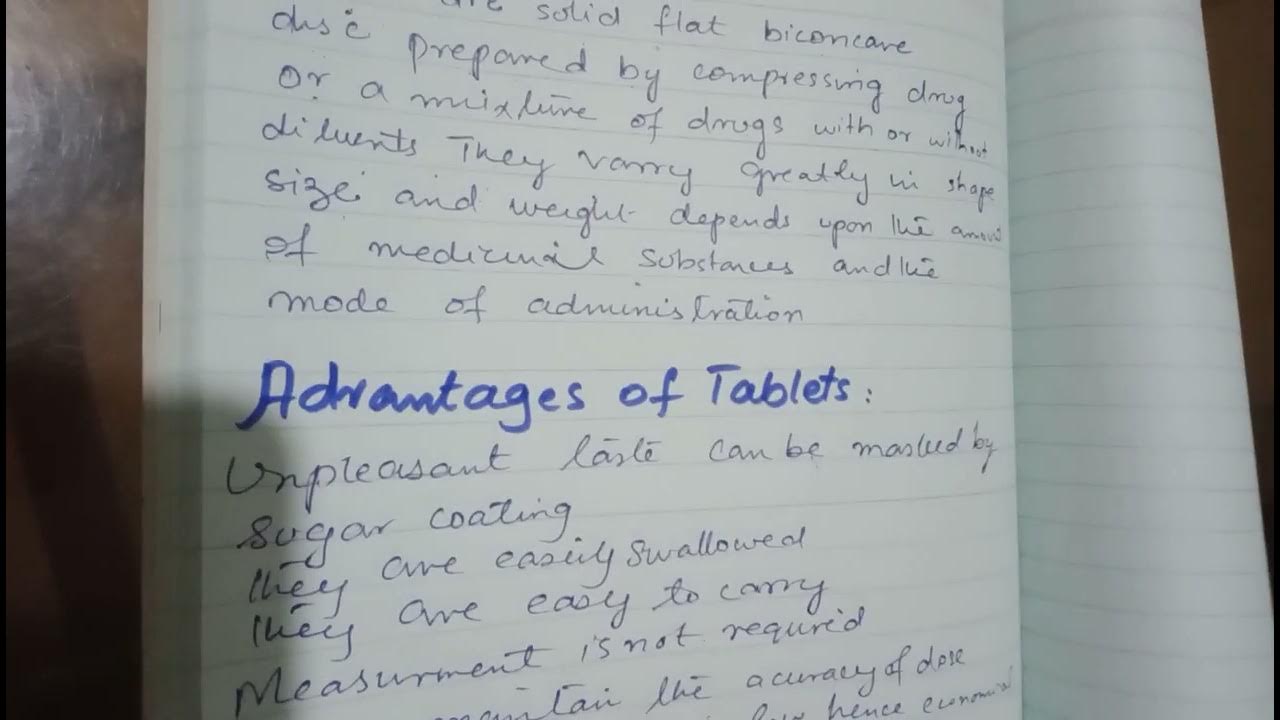 are solid flat biconcave
disc prepared by compressing drug
or a mixture of drugs with or without
diluents They varry greatly in shape
size and weight depends upon the amount
of medicinal substances and the
mode of administration
Advantages of Tablets:
Unpleasant taste can be masked by
sugar coating
They are easily swallowed
They are easy to carry
Measurment is not required
maintain the acuracy of dose
hence economical